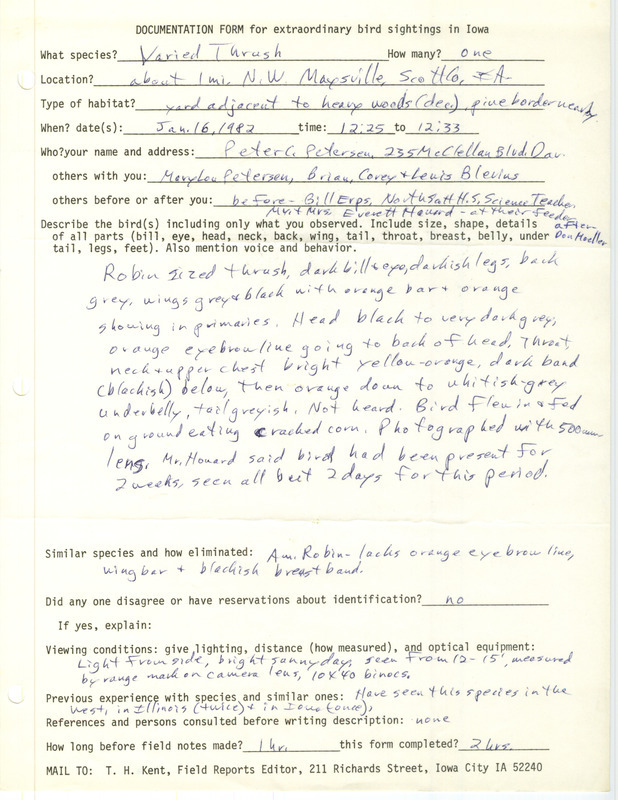 DOCUMENTATION FORM for extraordinary bird sightings in Iowa
What species? Varied Thrush How many? one
Location? about 1 mi. N.W. Maysville, Scott Co, IA
Type of habitat? yard adjacent to heavy woods (dec.), pine border nearby
When? date(s): Jan. 16, 1982 time: 12:25 to 12:33
Who? your name and address: Peter C. Petersen, 235 McClellan Blvd. Dav.
others with you: Marylou Petersen, Brian, Corey & Lewis Blevins
others before or after you: before - Bill Erps, North Scott H.S. Science Teacher
Mr. & Mrs. Everett Howard - at their feeder
after - Don Moeller
Describe the bird(s) including only what you observed. Include size, shape, details
of all parts (bill, eye, head, neck, back, wing, tail, throat, breast, belly, under
tail, legs, feet). Also mention voice and behavior.
Robin sized thrush, dark bill & eye, darkish legs, back
grey, wings grey & black with orange bar & orange
showing in primaries. Head black to very dark grey,
orange eyebrow line going to back of head, Throat,
neck & upper chest bright yellow-orange, dark band
(blackish) below, then orange down to whitish-grey
underbelly, tail greyish. Not heard. Bird flew in & fed
on ground eating cracked corn. Photographed with 500mm
lens. Mr. Howard said bird had been present for
2 weeks, seen all but 2 days for this period.
Similar species and how eliminated: Am. Robin - lacks orange eyebrow line,
wing bar + blackish breast band.
Did any one disagree or have reservations about identification? no
If yes, explain:
Viewing conditions: give lighting, distance (how measured), and optical equipment:
Light from side, bright sunny day, seen from 12-15', measured
by range mark on camera lens, 10x40 binocs.
Previous experience with species and similar ones: Have seen this species in the
West, in Illinois (twice) & in Iowa (once),
References and persons consulted before writing description: none
How long before field notes made? 1 hr. this form completed? 2 hrs.
MAIL TO: T. H. Kent, Field Reports Editor, 211 Richards Street, Iowa City IA 52240